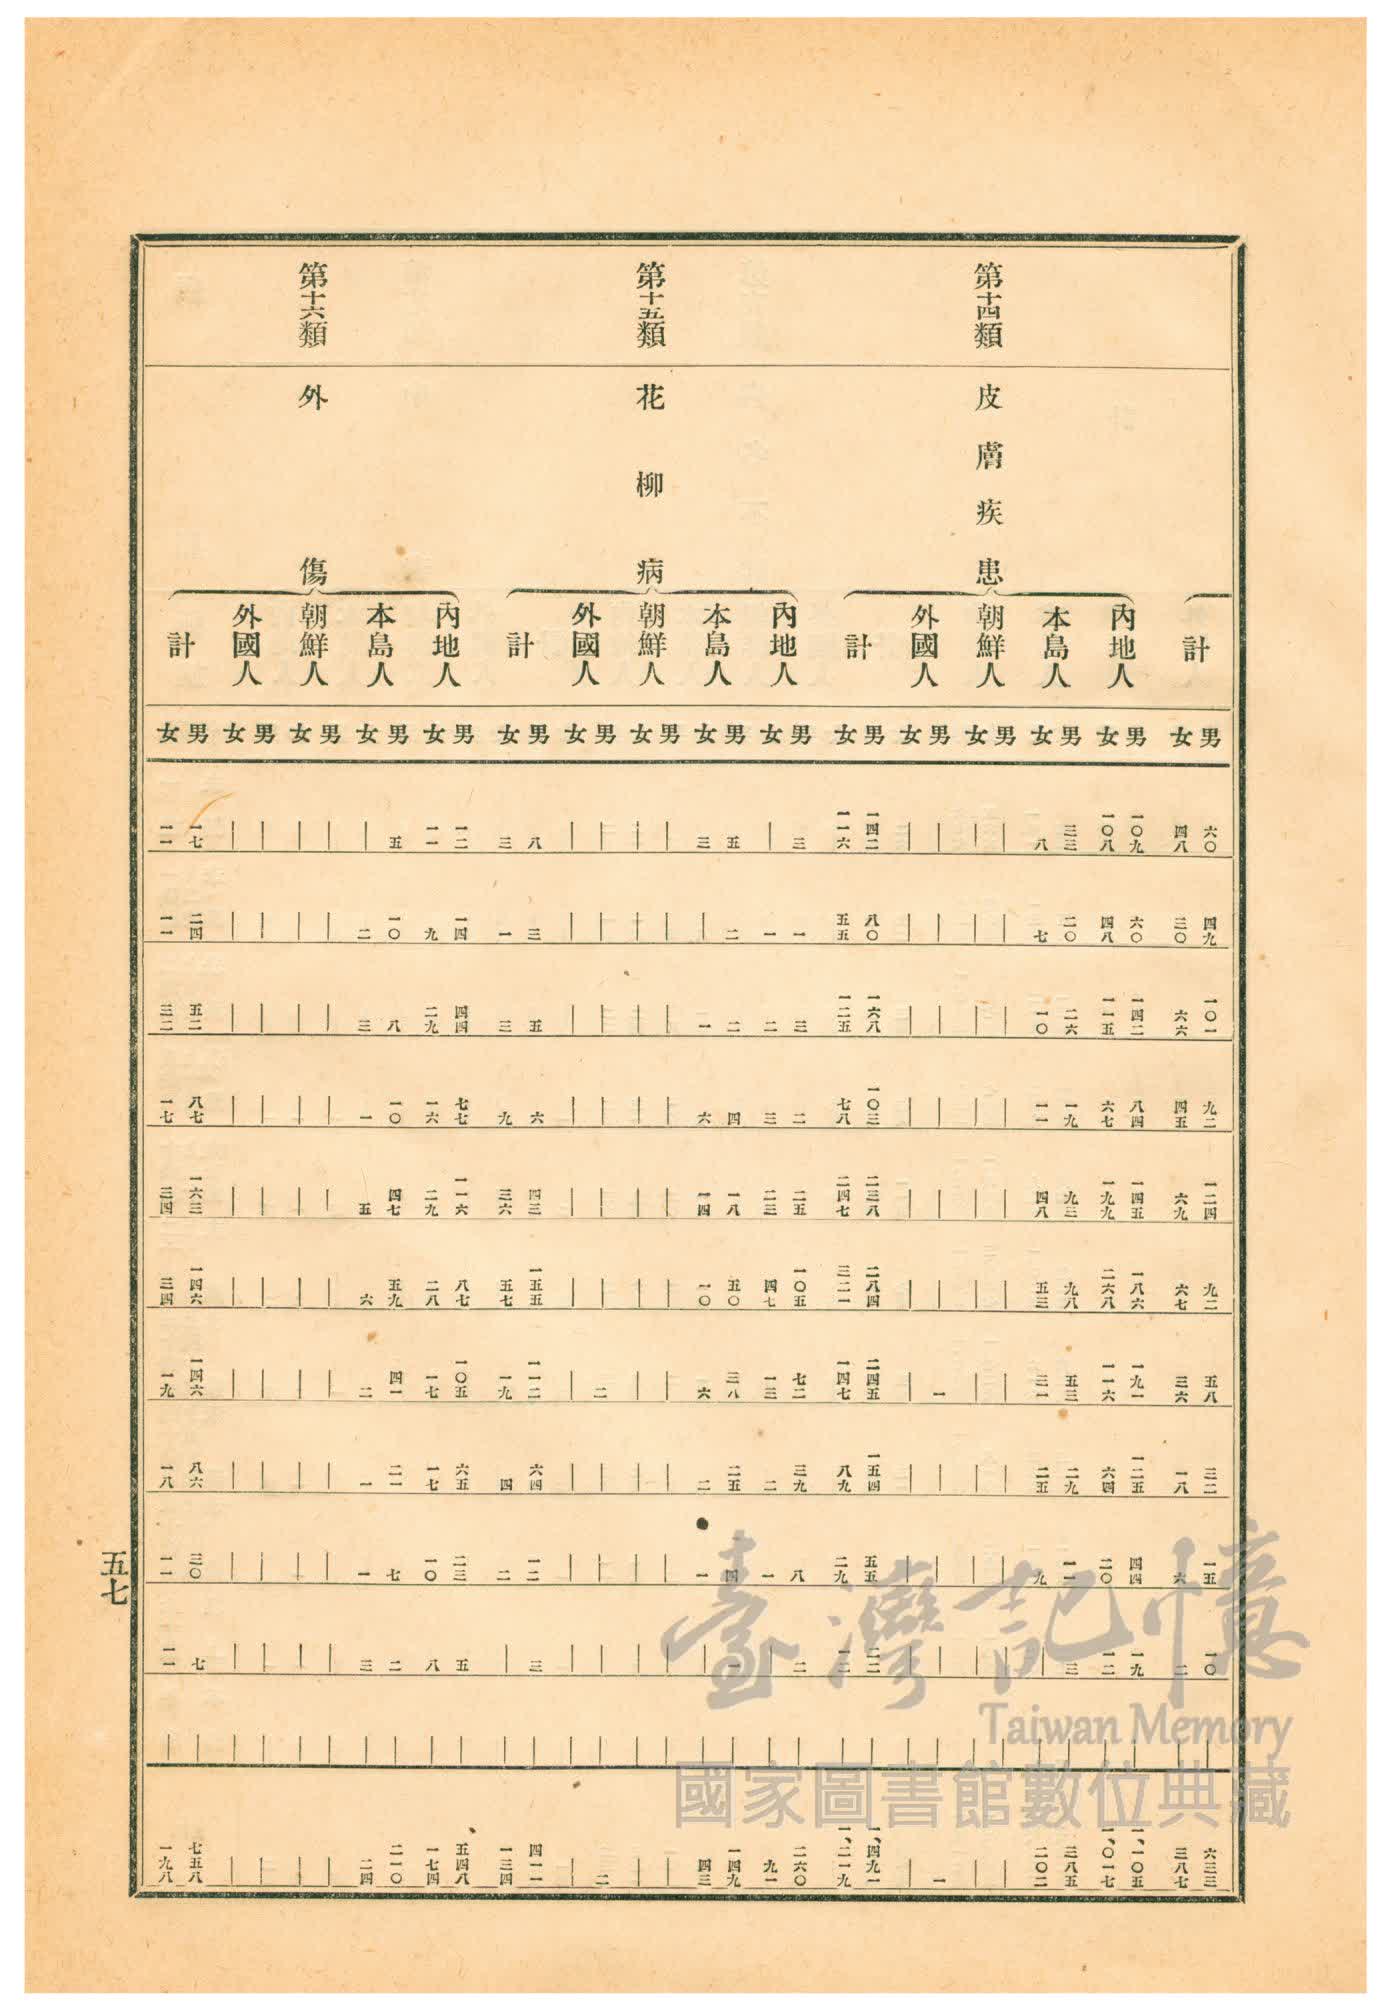 計
男 六〇 四九 一〇一 九二 一二四 九二 五八 三二 一五 一〇 ｜ 六三三
女 四八 三〇 六六 四五 六九 六七 三六 一八 六 二 ｜ 三八七
第十四類 皮膚疾患
內地人
男 一〇九 六〇 一四二 八四 一四五 一八六 一九一 一二五 四四 一九 ｜ 一、一〇五
女 一〇八 四八 一一五 六七 一九九 二六八 一一六 六四 二〇 一二 ｜ 一、〇一七
本島人
男 三三 二〇 二六 一九 九三 九八 五三 二九 一一 三 ｜ 三八五
女 八 七 一〇 一一 四八 五三 三一 二五 九 ｜ ｜ 二〇二
朝鮮人
男 ｜ ｜ ｜ ｜ ｜ ｜ ｜ ｜ ｜ ｜ ｜ ｜
女 ｜ ｜ ｜ ｜ ｜ ｜ ｜ ｜ ｜ ｜ ｜ ｜
外國人
男 ｜ ｜ ｜ ｜ ｜ ｜ 一 ｜ ｜ ｜ ｜ 一
女 ｜ ｜ ｜ ｜ ｜ ｜ ｜ ｜ ｜ ｜ ｜ ｜
計
男 一四二 八〇 一六八 一〇三 二三八 二八四 二四五 一五四 五五 二二 ｜ 一、四九一
女 一一六 五五 一二五 七八 二四七 三二一 一四七 八九 二九 一二 ｜ 一、二一九
第十五類 花柳病
內地人
男 三 一 三 二 二五 一〇五 七二 三九 八 二 ｜ 二六〇
女 ｜ 一 二 三 二三 四七 一三 二 一 ｜ ｜ 九一
本島人
男 五 二 二 四 一八 五〇 三八 二五 四 一 ｜ 一四九
女 三 ｜ 一 六 一四 一〇 六 二 一 ｜ ｜ 四三
朝鮮人
男 ｜ ｜ ｜ ｜ ｜ ｜ ｜ ｜ ｜ ｜ ｜ ｜
女 ｜ ｜ ｜ ｜ ｜ ｜ ｜ ｜ ｜ ｜ ｜ ｜
外國人
男 ｜ ｜ ｜ ｜ ｜ ｜ 二 ｜ ｜ ｜ ｜ 二
女 ｜ ｜ ｜ ｜ ｜ ｜ ｜ ｜ ｜ ｜ ｜ ｜
計
男 八 三 五 六 四三 一五五 一一二 六四 一二 三 ｜ 四一一
女 三 一 三 九 三六 五七 一九 四 二 ｜ ｜ 一三四
第十六類 外傷
內地人
男 一二 一四 四四 七七 一一六 八七 一〇五 六五 二三 五 ｜ 五四八
女 一一 九 二九 一六 二九 二八 一七 一七 一〇 八 ｜ 一七四
本島人
男 五 一〇 八 一〇 四七 五九 四一 二一 七 二 ｜ 二一〇
女 ｜ 二 三 一 五 六 二 一 一 三 ｜ 二四
朝鮮人
男 ｜ ｜ ｜ ｜ ｜ ｜ ｜ ｜ ｜ ｜ ｜ ｜
女 ｜ ｜ ｜ ｜ ｜ ｜ ｜ ｜ ｜ ｜ ｜ ｜
外國人
男 ｜ ｜ ｜ ｜ ｜ ｜ ｜ ｜ ｜ ｜ ｜ ｜
女 ｜ ｜ ｜ ｜ ｜ ｜ ｜ ｜ ｜ ｜ ｜ ｜
計
男 一七 二四 五二 八七 一六三 一四六 一四六 八六 三〇 七 ｜ 七五八
女 一一 一一 三二 一七 三四 三四 一九 一八 一一 一一 ｜ 一九八
五七
臺灣記憶
Taiwan Memory
國家圖書館數位典藏